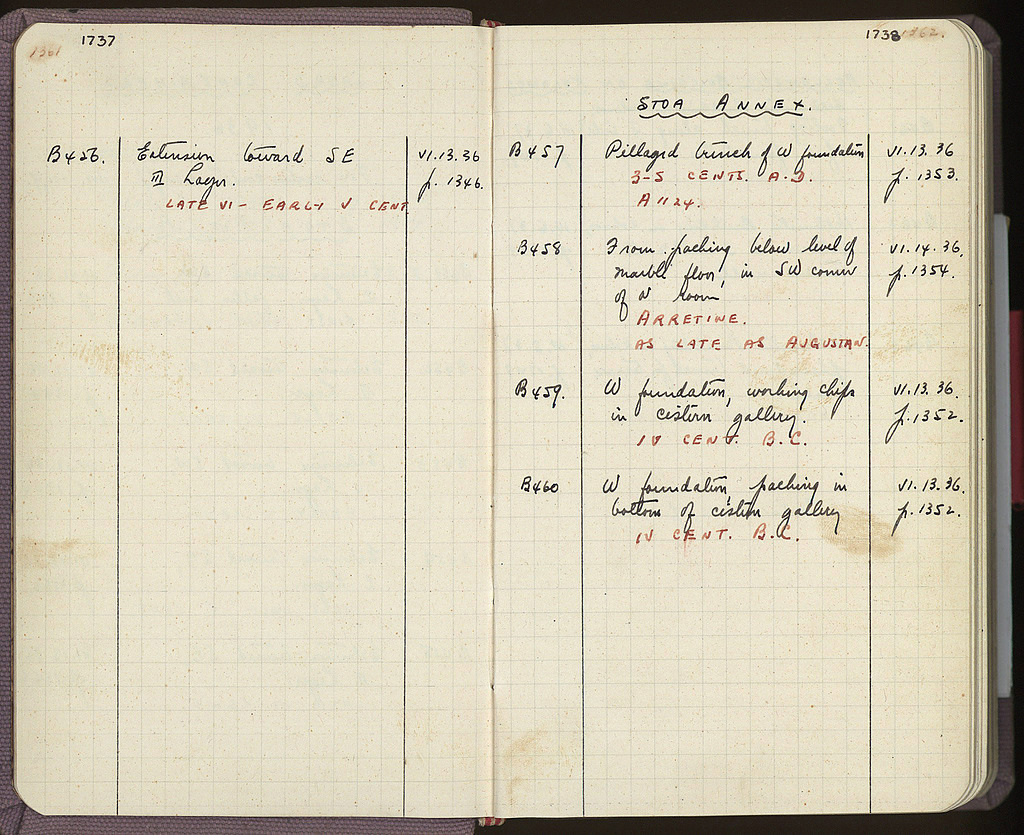 1361 1737
B456. Extension toward SE VI.13.36
III Layer. p. 1346.
LATE VI - EARLY V CENT
1738 1362.
STOA ANNEX.
B457 Pillaged trench of W foundation VI.13.36
3-5 CENTS. A.D. p. 1353.
A 1124.
B458 From packing below level of VI.14.36.
marble floor, in SW corner p. 1354.
of N room
ARRETINE.
AS LATE AS AUGUSTAN.
B459. W foundation, working chips VI.13.36.
in cistern gallery. p. 1352.
IV CENT. B.C.
B460 W foundation, packing in VI.13.36.
bottom of cistern gallery p. 1352.
IV CENT. B.C.